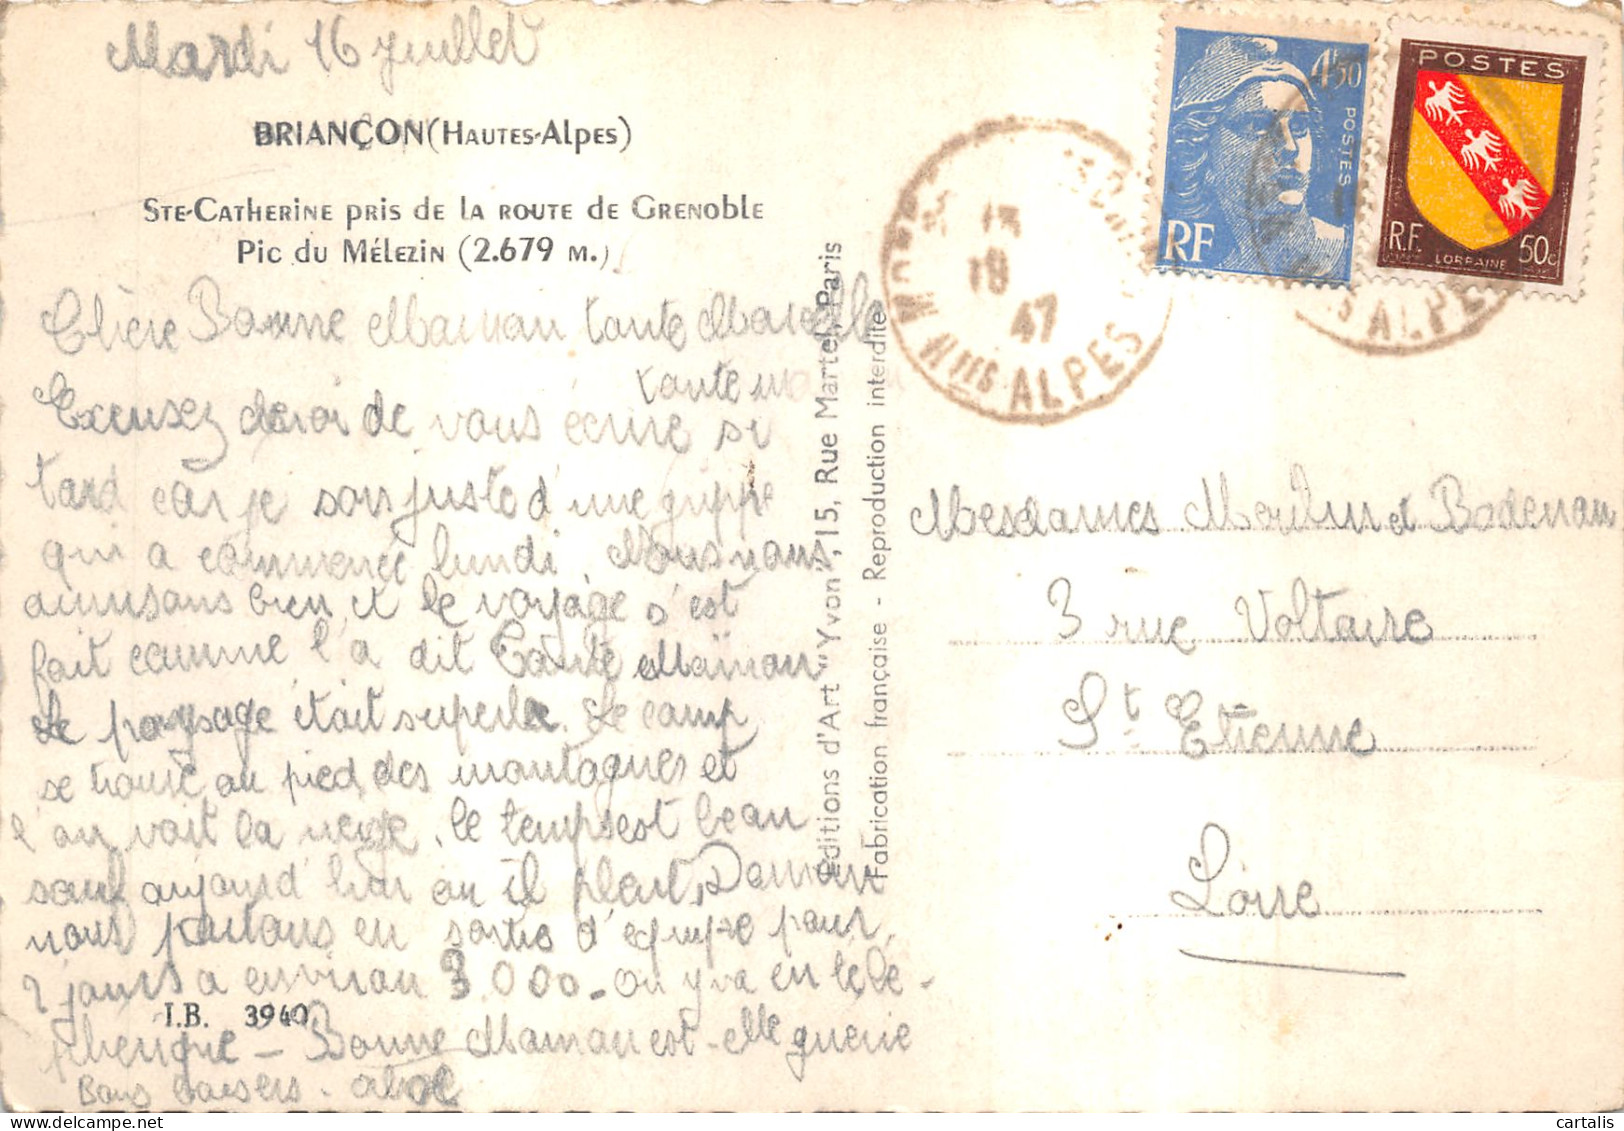 Mardi 16 juillet
BRIANÇON (HAUTES-ALPES)
STE-CATHERINE PRIS DE LA ROUTE DE GRENOBLE
PIC DU MÉLEZIN (2.679 M.)
Chère Bonne Maman tante Marcelle
tante
Excusez de vous écrire si
tard car je sors juste d'une grippe
qui a commencé lundi. Nous nous
amusons bien et le voyage s'est
fait comme l'a dit Tante Maïnou
Le paysage était superbe. Le camp
se trouve au pied des montagnes et
l'on voit la neige. le temps est beau
sauf aujourd'hui ou il pleut. Demain
nous partons en sortie d'équipe pour
2 jours a environ 3.000 - on y va en télé-
phérique - Bonne Maman est-elle guerie
Bons baisers.
I.B. 3940
Éditions d'Art "Yvon", 15, Rue Martel, Paris
Fabrication française - Reproduction interdite
47
Htes ALPES
4F50
POSTES
RF
POSTES
R.F.
LORRAINE
50c
ALPES
Mesdames Moulin et Bodenan
3 rue Voltaire
St Etienne
Loire
cartalis